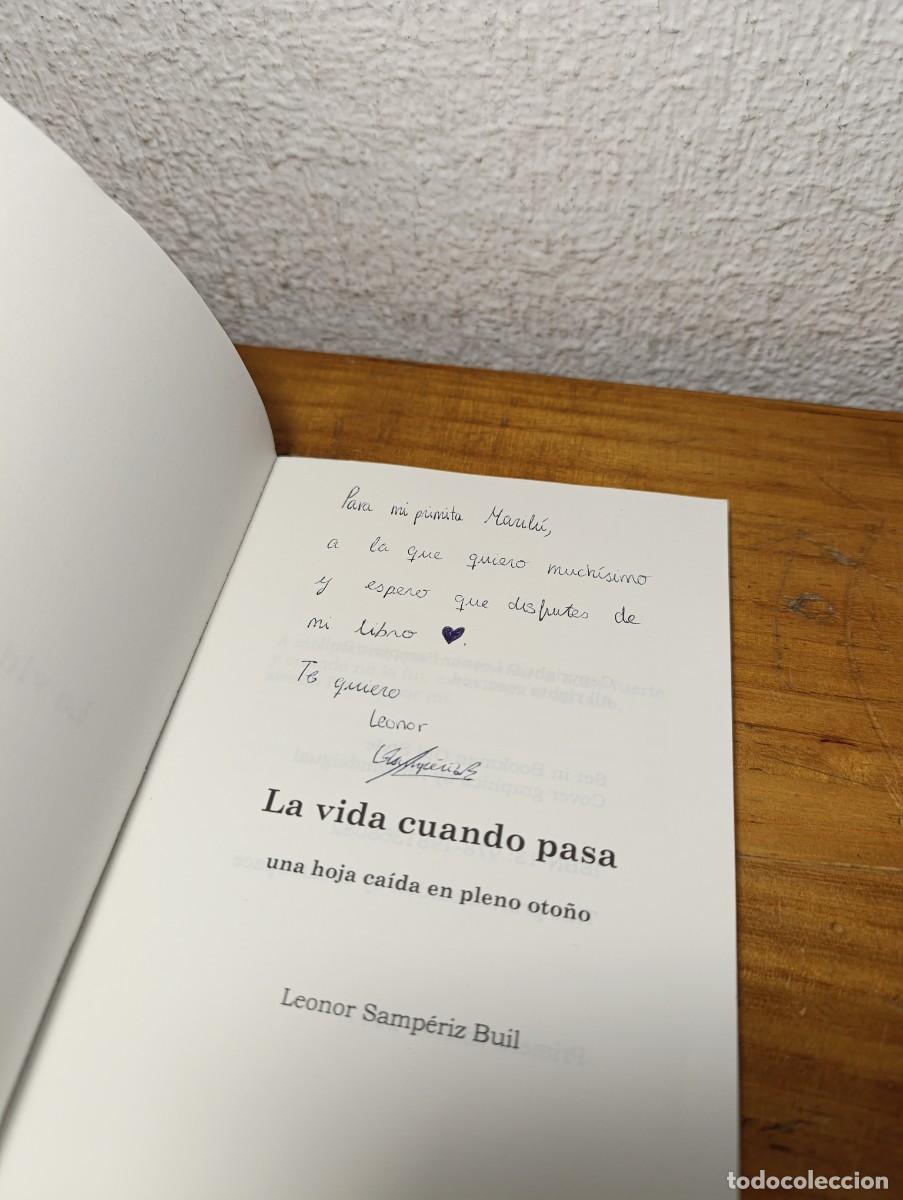 Para mi primita Marilú,
a la que quiero muchísimo
y espero que disfrutes de
mi libro
Te quiero
Leonor
La vida cuando pasa
una hoja caída en pleno otoño
Leonor Sampériz Buil
todocoleccion